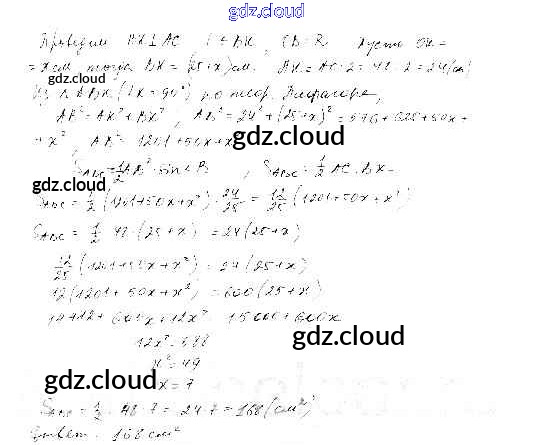 gdz.cloud
Проведем BK ⊥ AC, OK =
= x см, тогда BK = (25+x) см. AK = AC : 2 = 48 : 2 = 24 (см)
gdz.cloud
Из △ABK (∠K = 90°) по теор. Пифагора,
AB² = AK² + BK², AB² = 24² + (25+x)² = 576 + 625 + 50x +
+ x², AB² = 1201 + 50x + x²
gdz.cloud
S_ABC = 1/2 AB² · sin∠B, S_ABC = 1/2 AC · BK
gdz.cloud
S_ABC = 1/2 (1201 + 50x + x²) · 24/25 = 12/25 (1201 + 50x + x²)
S_ABC = 1/2 · 48 · (25 + x) = 24 (25 + x)
12/25 (1201 + 50x + x²) = 24 (25 + x)
12 (1201 + 50x + x²) = 600 (25 + x)
14412 + 600x + 12x² = 15000 + 600x
gdz.cloud
12x² = 588
x² = 49
gdz.cloud
x = 7
S_ABC = 1/2 · 48 · 7 = 24 · 7 = 168 (см²)
Ответ: 168 см²